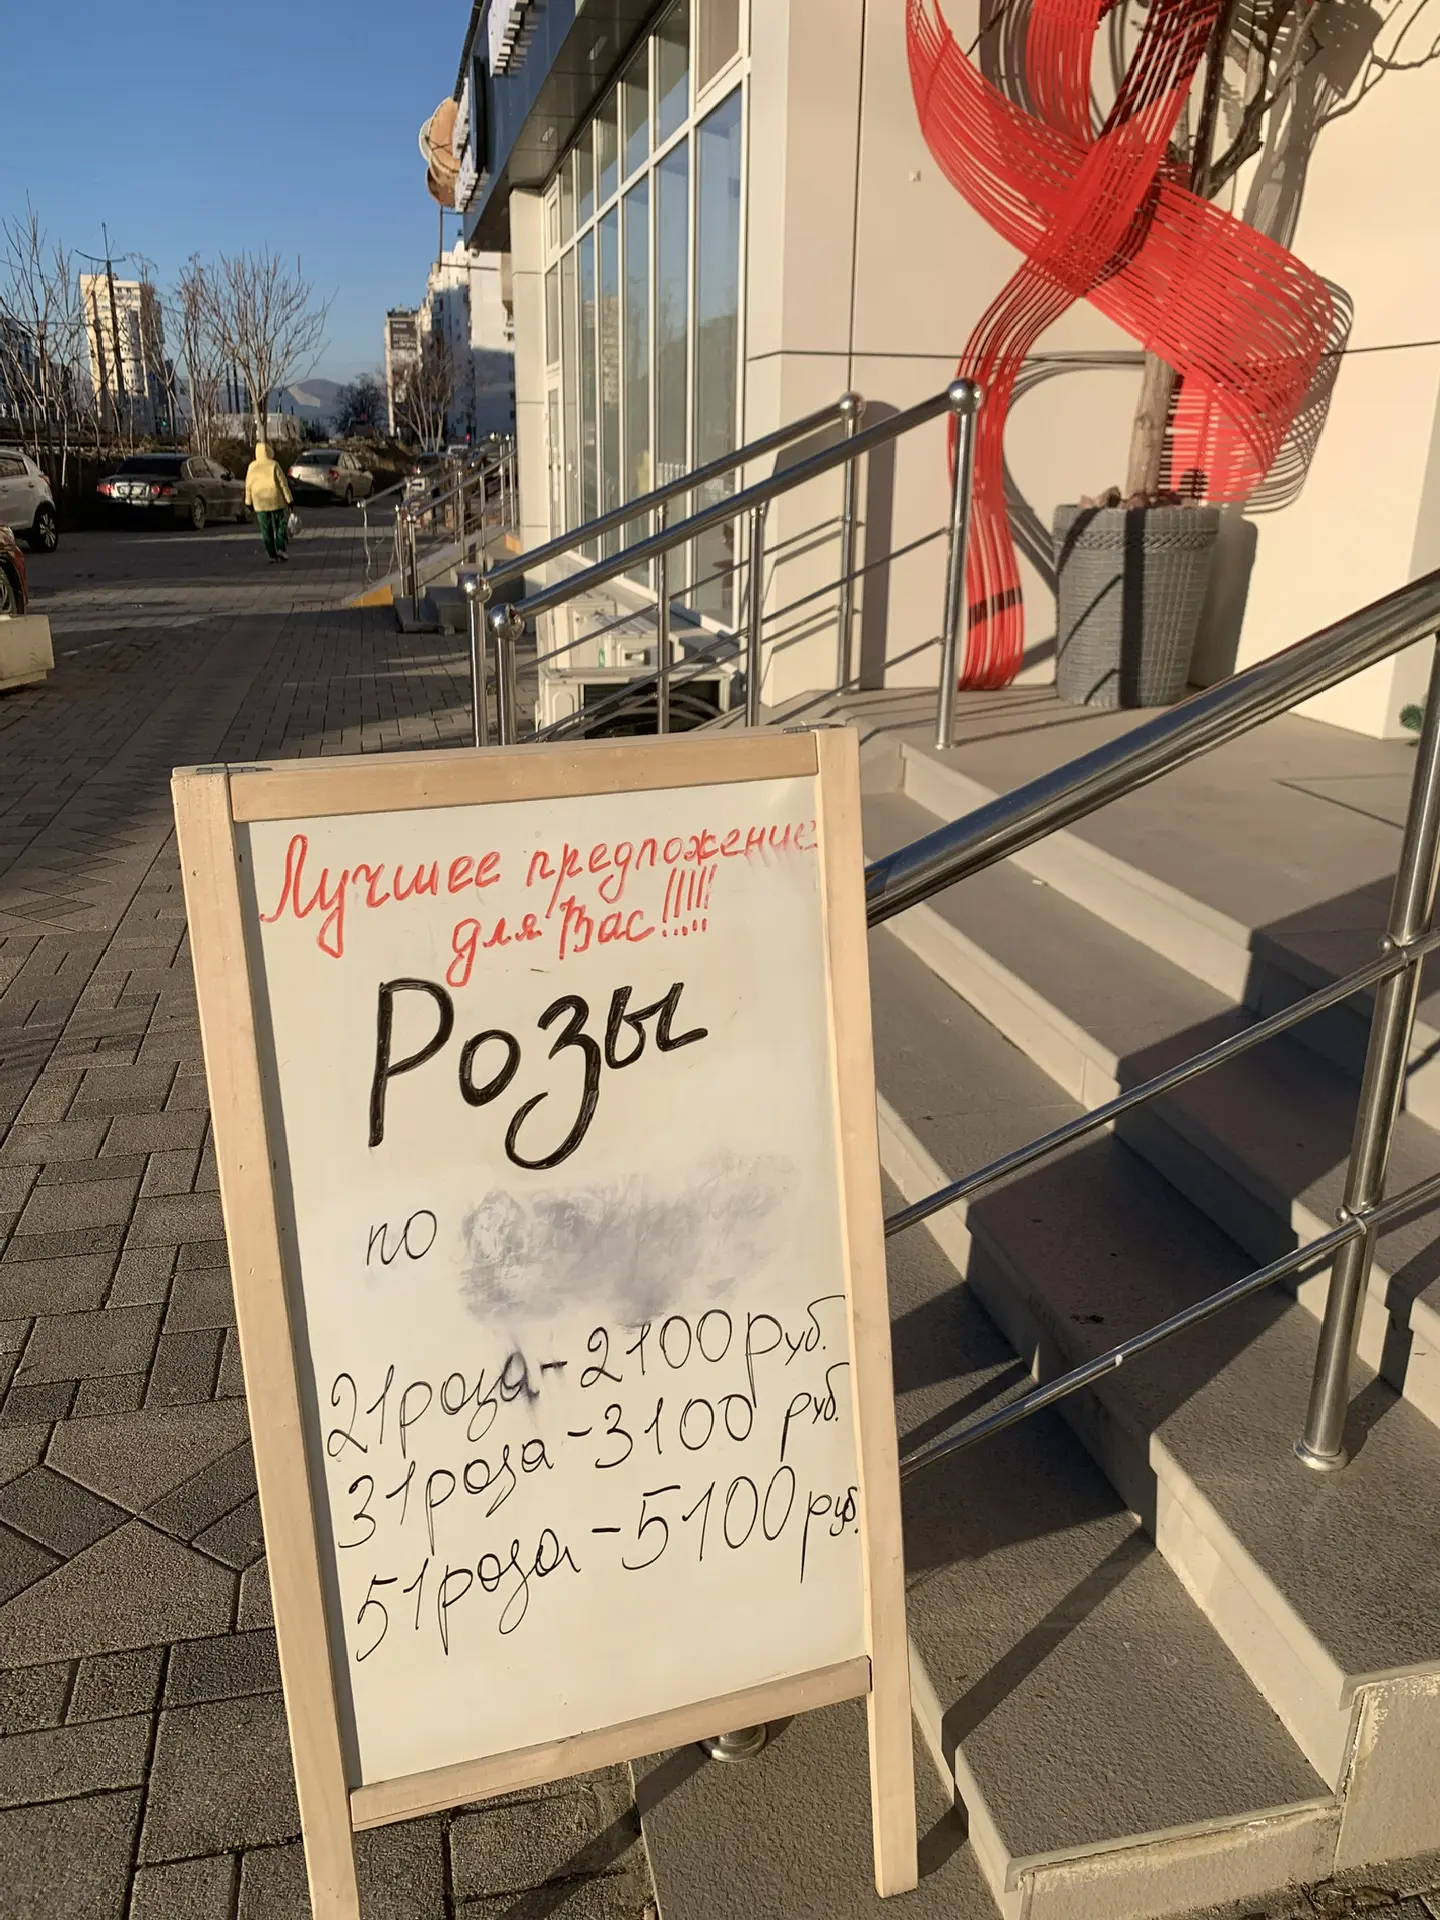 Лучшее предложение
для Вас!!!!!
Розы
по
21 роза - 2100 руб.
31 роза - 3100 руб.
51 роза - 5100 руб.